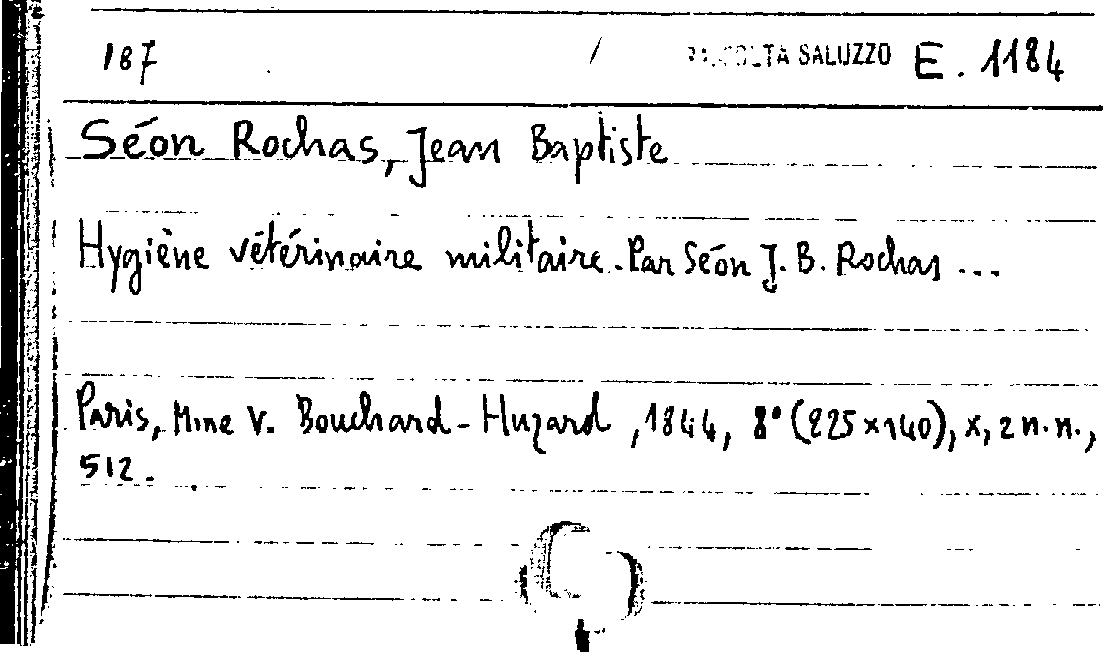 187 / RACCOLTA SALUZZO E. 1184
Séon Rochas, Jean Baptiste
Hygiène vétérinaire militaire. Par Séon J. B. Rochas ...
Paris, Mme V. Bouchard-Huzard, 1844, 8° (225×140), x, 2 n.n.,
512.